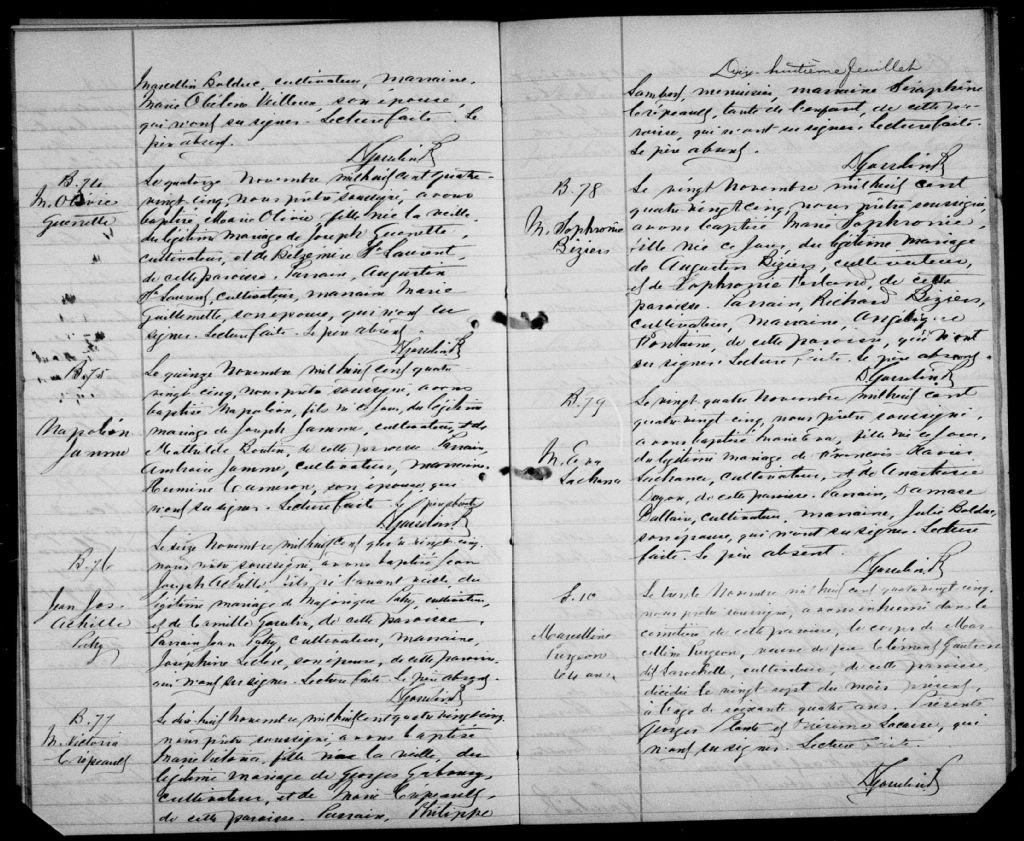 Marcellin Bolduc, cultivateur, marraine,
Marie Obéline Veilleux, son épouse,
qui n'ont su signer. Lecture faite. Le
père absent.
B. 74
M. Olivie
Guenette
Le quatorze Novembre mil huit cent quatre-
vingt cinq, nous prêtre soussigné, avons
baptisé Marie Olivie fille née la veille
du légitime mariage de Joseph Guenette,
cultivateur, et de Belzemire St Laurent,
de cette paroisse. Parrain, Augustin
St Laurent, cultivateur, marraine Marie
Guillemette, son épouse, qui n'ont su
signer. Lecture faite. Le père absent.
B. 75
Napoléon
Jamme
Le quinze Novembre mil huit cent quatre
vingt cinq, nous prêtre soussigné, avons
baptisé Napoléon, fils né ce jour, du légitime
mariage de Joseph Jamme, cultivateur, et de
Mathilde Boutin, de cette paroisse. Parrain,
Ambroise Jamme, cultivateur, marraine,
Hermine Cameron, son épouse, qui
n'ont su signer. Lecture faite. Le père absent.
B. 76
Jean Jos.
Achille
Le seize Novembre mil huit cent quatre vingt cinq,
nous prêtre soussigné, avons baptisé Jean
Joseph Achille, fils né l'avant veille du
légitime mariage de Majorique cultivateur,
et de Camille Gosselin, de cette paroisse.
Parrain Jean cultivateur, marraine,
Josephine Leclerc, son épouse, de cette paroisse
qui n'ont su signer. Lecture faite. Le père absent.
B. 77
M. Victoria
Crépeault
Le dix huit Novembre, mil huit cent quatre vingt cinq,
nous prêtre soussigné, avons baptisé
Marie Victoria, fille née la veille, du
légitime mariage de Georges Gaboury,
cultivateur, et de Marie Crépeault,
de cette paroisse. Parrain, Philippe
Dix-huitième feuillet
Lambert, menuisier, marraine Séraphine
Crépeault, tante de l'enfant, de cette pa-
roisse, qui n'ont su signer. Lecture faite.
Le père absent.
B. 78
M. Sophronie
Béziers
Le vingt Novembre mil huit cent
quatre vingt cinq, nous prêtre soussigné,
avons baptisé Marie Sophronie,
fille née ce jour, du légitime mariage
de Augustin Béziers, cultivateur,
et de Sophronie de cette
paroisse. Parrain, Richard Béziers,
cultivateur, marraine, Angélique
Fontaine, de cette paroisse, qui n'ont
su signer. Lecture faite. Le père absent.
B. 79
M. Eva
Lachance
Le vingt quatre Novembre mil huit cent
quatre vingt cinq, nous prêtre soussigné,
avons baptisé Marie Eva, fille née ce jour,
du légitime mariage de François Xavier
Lachance, cultivateur, et de Anastasie
de cette paroisse. Parrain, Damase
cultivateur, marraine, Julie Bolduc,
son épouse, qui n'ont su signer. Lecture
faite. Le père absent.
S. 10
Marcelline
Turgeon
64 ans
Le trente Novembre mil huit cent quatre vingt cinq,
nous prêtre soussigné, avons inhumé dans le
cimetière de cette paroisse, le corps de Mar-
celline Turgeon, veuve de feu Clément Gauthier
dit Larochelle, cultivateur, de cette paroisse
décédée le vingt sept du mois présent,
à l'âge de soixante quatre ans. Présents
Georges Plante et Lacasse, qui
n'ont su signer. Lecture faite.